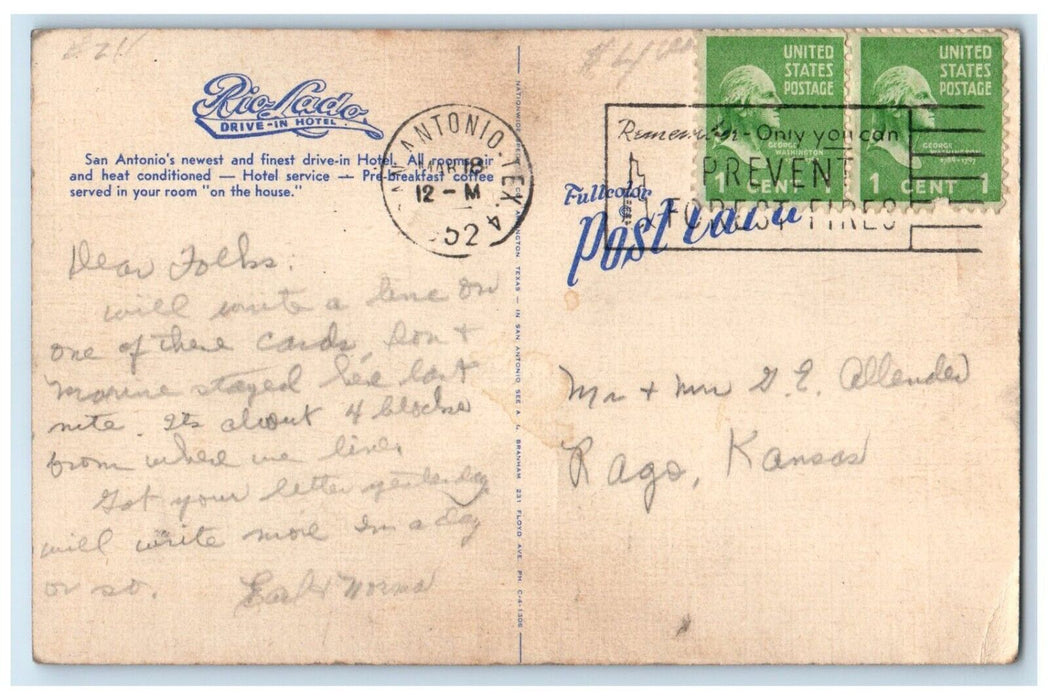 $4
Rio-Lado
DRIVE-IN HOTEL
San Antonio's newest and finest drive-in Hotel. All rooms air
and heat conditioned — Hotel service — Pre-breakfast coffee
served in your room "on the house."
SAN ANTONIO, TEX. 4
MAR 18
12 - M
52
Remember - Only you can
PREVENT
FOREST FIRES
UNITED
STATES
POSTAGE
GEORGE
WASHINGTON
1 CENT 1
UNITED
STATES
POSTAGE
GEORGE
WASHINGTON
1 CENT 1
Fullcolor
Postcard
Dear Folks:
will write a line on
one of these cards, Don +
Maxine stayed here last
nite. Its about 4 blocks
from where we live.
Got your letter yesterday
will write more in a day
or so.
Earl & Norma
TEXAS — IN SAN ANTONIO SEE A. G. BRANHAM 231 FLOYD AVE. PH. C-4-1306
Mr + Mrs G. E. Allender
Rago, Kansas